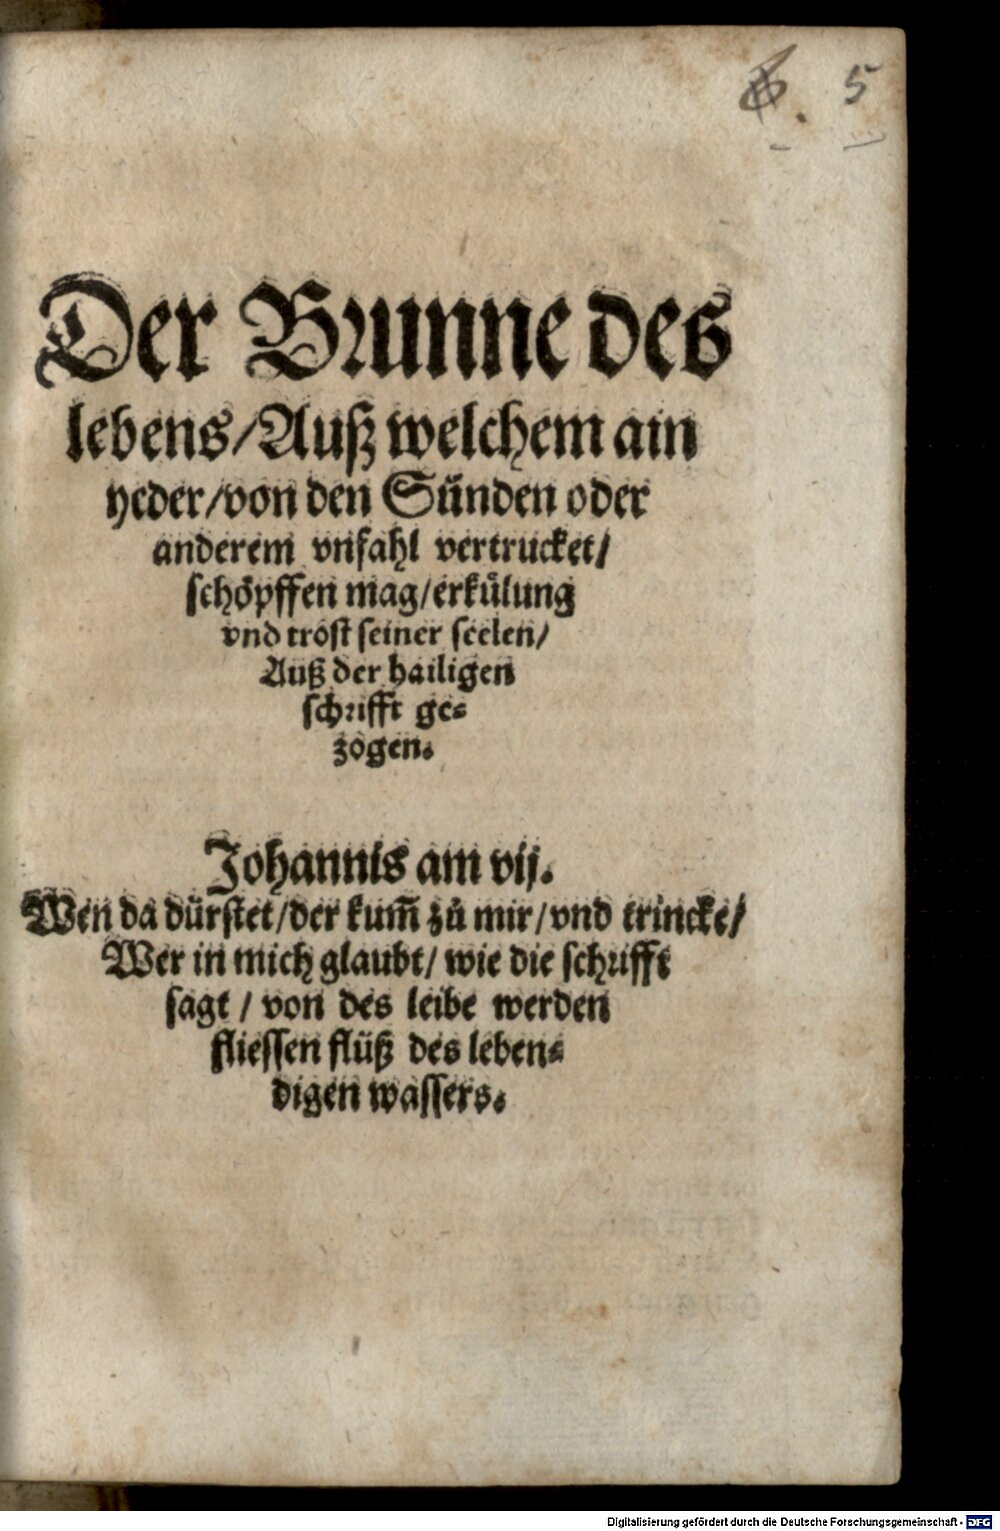 5
Der Brunne des
lebens/Auß welchem ain
yeder/von den Sünden oder
anderem vnfahl vertrucket/
schöpffen mag/erkülung
vnd trost seiner seelen/
Auß der hailigen
schrifft ge⸗
zogen.
Johannis am vij.
Wen da dürstet/der kum̄ zů mir/vnd trincke/
Wer in mich glaubt/ wie die schrifft
sagt / von des leibe werden
fliessen flüß des leben⸗
digen wassers.
Digitalisierung gefördert durch die Deutsche Forschungsgemeinschaft - DFG